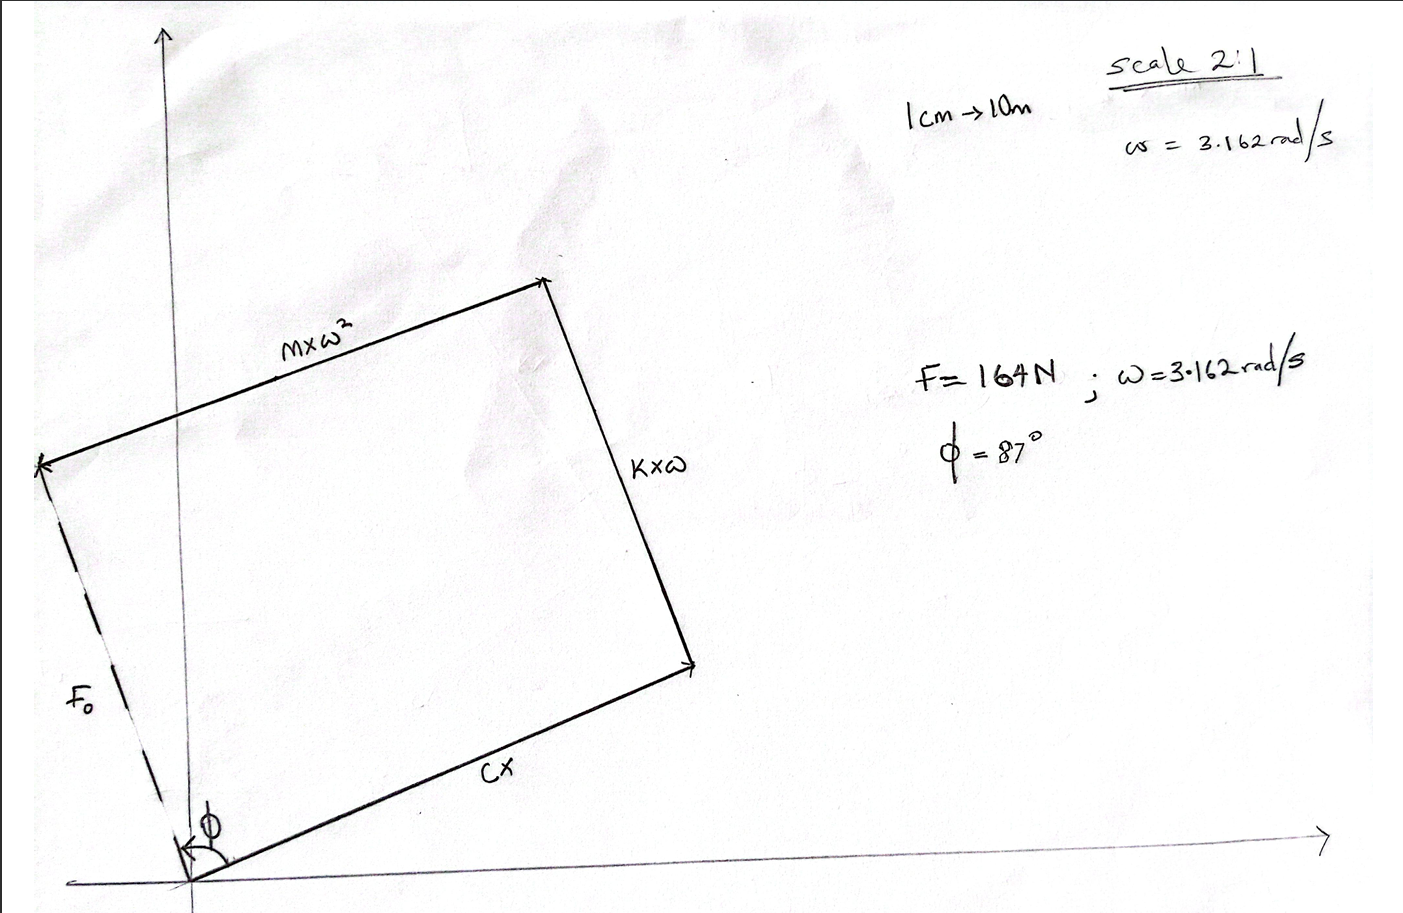 scale 2:1
1cm → 10m
ω = 3.162 rad/s
mxω²
F = 164N ; ω = 3.162 rad/s
Kxω
ϕ = 87°
F₀
cx
ϕ